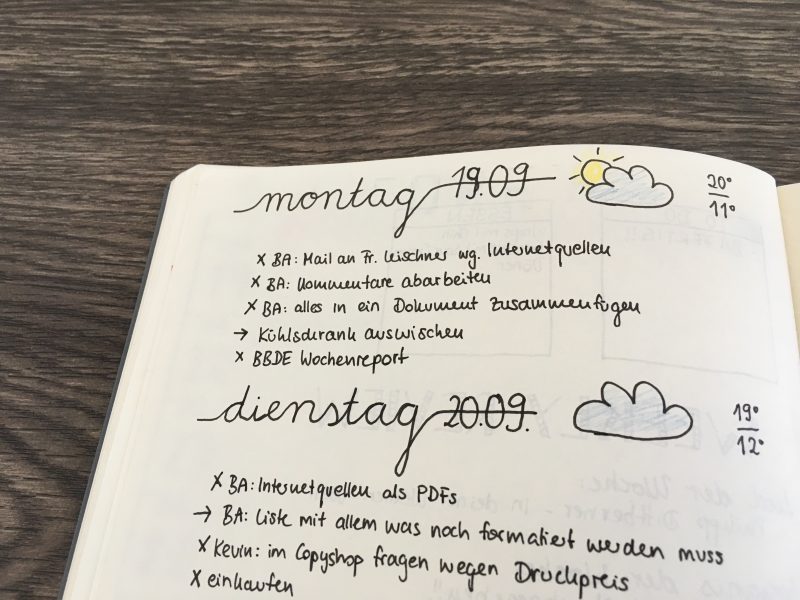 montag 19.09 20°
11°
x BA: Mail an Fr. Leischner wg. Internetquellen
x BA: Kommentare abarbeiten
x BA: alles in ein Dokument zusammenfügen
→ Kühlschrank auswischen
x BBDE Wochenreport
dienstag 20.09. 19°
12°
x BA: Internetquellen als PDFs
→ BA: Liste mit allem was noch formatiert werden muss
x Kevin: im Copyshop fragen wegen Druckpreis
x einkaufen